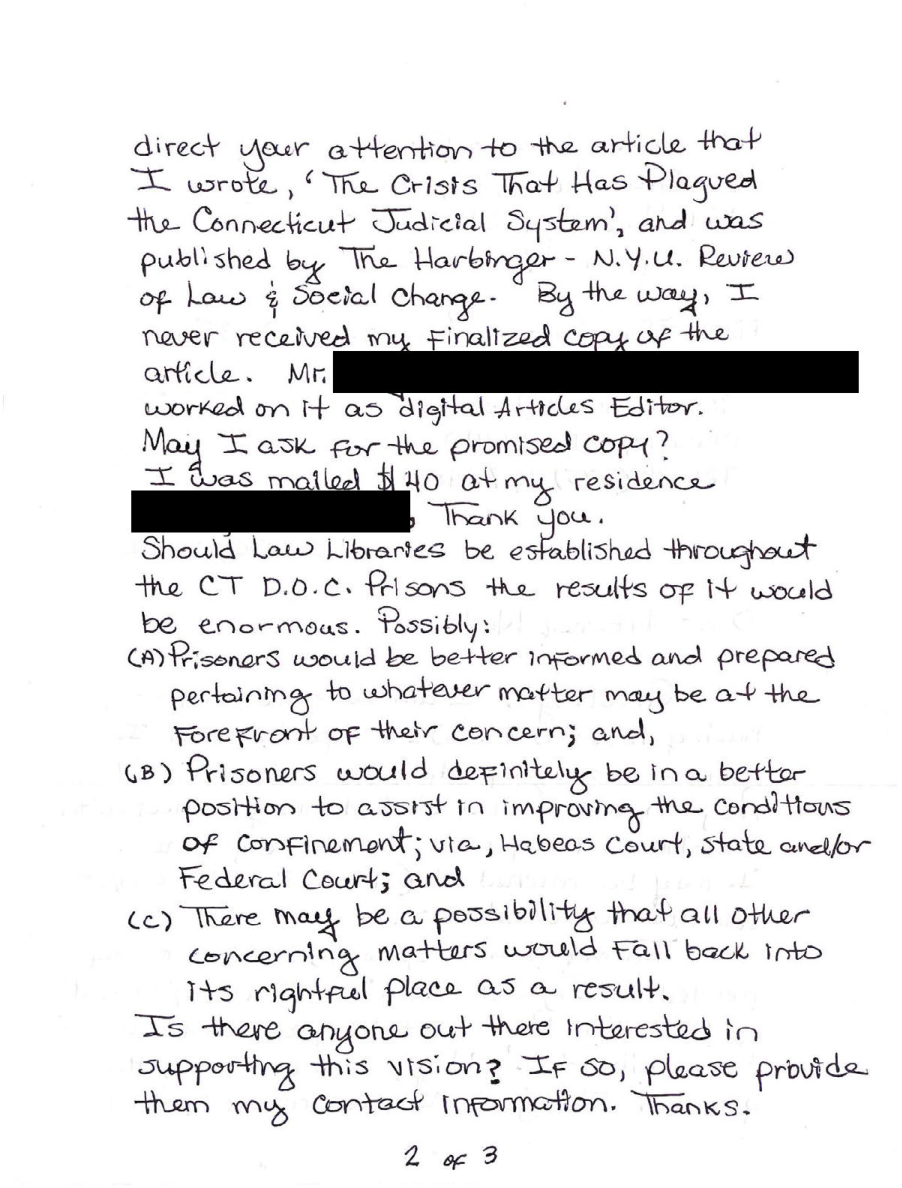 direct your attention to the article that
I wrote, 'The Crisis That Has Plagued
the Connecticut Judicial System', and was
published by The Harbinger - N.Y.U. Review
of Law & Social Change. By the way, I
never received my finalized copy of the
article. Mr.
worked on it as digital Articles Editor.
May I ask for the promised copy?
I was mailed $40 at my residence
, Thank you.
Should Law Libraries be established throughout
the CT D.O.C. Prisons the results of it would
be enormous. Possibly:
(A) Prisoners would be better informed and prepared
pertaining to whatever matter may be at the
forefront of their concern; and,
(B) Prisoners would definitely be in a better
position to assist in improving the conditions
of confinement; via, Habeas Court, State and/or
Federal Court; and
(C) There may be a possibility that all other
concerning matters would fall back into
its rightful place as a result.
Is there anyone out there interested in
supporting this vision? If so, please provide
them my contact information. Thanks.
2 of 3